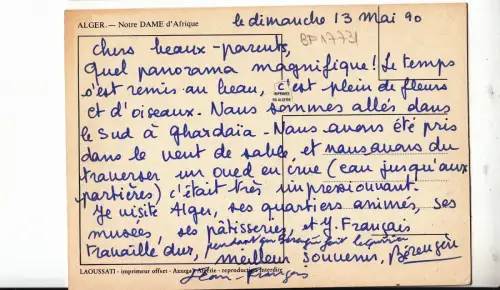 ALGER. — Notre DAME d'Afrique
le dimanche 13 Mai 90
BP17731
chers beaux-parents,
Quel panorama magnifique! Le temps
s'est remis au beau, c'est plein de fleurs
IMPRIMÉE
EN ALGÉRIE
et d'oiseaux. Nous sommes allés dans
le Sud à Ghardaïa. Nous avons été pris
dans le vent de sable, et nous avons du
traverser un oued en crue (eau jusqu'aux
portières) c'était très impressionnant.
Je visite Alger, ses quartiers animés, ses
musées, ses pâtisseries, et J. Français
travaille dur, pendant que Bérengère fait
meilleur souvenir, Bérengère
LAOUSSATI - imprimeur offset - Alger - Algérie - reproduction interdite
Jean-François